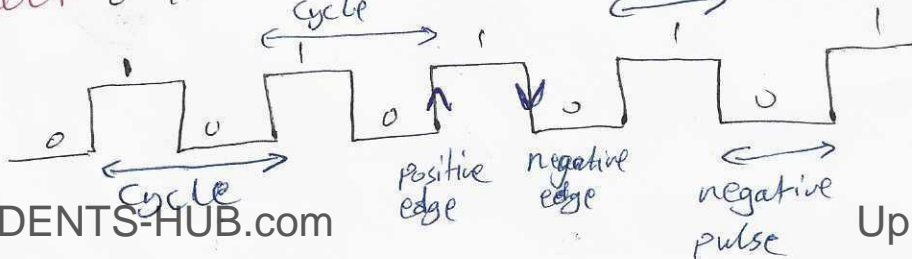 cycle
1
1
1
1
1
0
0
0
0
0
cycle
positive
edge
negative
edge
negative
pulse
DENTS-HUB.com
Up